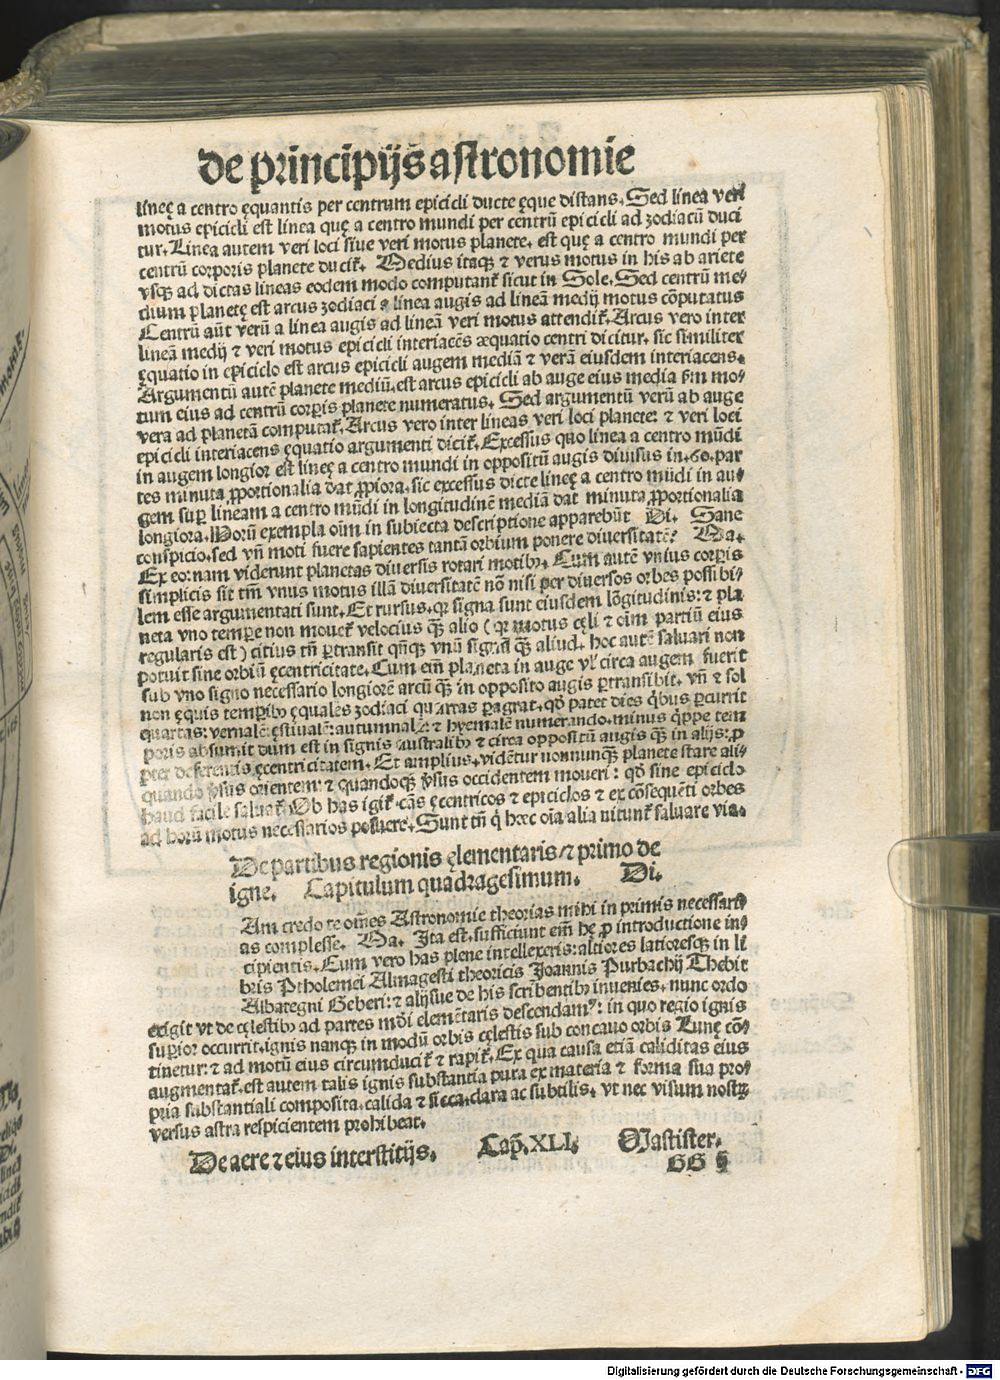 de principijs astronomie
lineę a centro ęquantis per centrum epicicli ducte ęque distans. Sed linea veri
motus epicicli est linea quę a centro mundi per centrū epicicli ad zodiacū duci
tur. Linea autem veri loci siue veri motus planete. est quę a centro mundi per
centrū corporis planete ducit̄. Medius itaqꝫ ⁊ verus motus in his ab ariete
vsqꝫ ad dictas lineas eodem modo computant̄ sicut in Sole. Sed centrū me⸗
dium planetę est arcus zodiaci a linea augis ad lineā medij motus cōputatus
Centrū aūt verū a linea augis ad lineā veri motus attendit̄. Arcus vero inter
lineā medij ⁊ veri motus epicicli interiacēs æquatio centri dicitur. sic similiter
ęquatio in epiciclo est arcus epicicli augem mediā ⁊ verā eiusdem interiacens.
Argumentū autē planete mediū. est arcus epicicli ab auge eius media ẜm mo⸗
tum eius ad centrū corꝑis planete numeratus. Sed argumentū verū ab auge
vera ad planetā computat̄. Arcus vero inter lineas veri loci planete: ⁊ veri loci
epicicli interiacens ęquatio argumenti dicit̄. Excessus quo linea a centro mūdi
in augem longior est lineę a centro mundi in oppositū augis diuisus in .60. par
tes minuta ꝓportionalia dat ꝓpiora. sic excessus dicte lineę a centro mūdi in au⸗
gem suꝑ lineam a centro mūdi in longitudinē mediā dat minuta ꝓportionalia
longiora. Horū exempla oīm in subiecta descriptione apparebūt Di. Sane
conspicio. sed vn̄ moti fuere sapientes tantā orbium ponere diuersitatē? Ma.
Ex eo: nam viderunt planetas diuersis rotari motibꝰ. Cum autē vnius corꝑis
simplicis sit tm̄ vnus motus illā diuersitatē nō nisi per diuersos orbes possibi⸗
lem esse argumentati sunt. Et rursus. qꝛ signa sunt eiusdem lōgitudinis: ⁊ pla
neta vno temꝑe non mouet̄ velocius qꝫ̄ alio (qꝛ motus cęli ⁊ oīm partiū eius
regularis est) citius tn̄ ꝑtransit qn̄qꝫ vnū signū qꝫ̄ aliud. hoc autē saluari non
potuit sine orbiū ęcentricitate. Cum em̄ planeta in auge vl̓ circa augem fuerit
sub vno signo necessario longiorē arcū qꝫ̄ in opposito augis ꝑtransibit. vn̄ ⁊ sol
non ęquis temꝑibꝰ ęquales zodiaci quartas ꝑagrat. qd̄ patet dies q̇bus ꝑcurrit
quartas: vernalē: ęstiualē: autumnalē: ⁊ hyemalē numerando. minus q̇ppe tem
poris absumit dum est in signis australibꝰ ⁊ circa oppositū augis qꝫ̄ in alijs: ꝓ
pter deferentis ęcentricitatem. Et amplius. vidētur nonnunqꝫ̄ planete stare ali⸗
quando ꝟsus orientem: ⁊ quandoqꝫ ꝟsus occidentem moueri: qd̄ sine epiciclo
haud facile saluat̄. Ob has igit̄ cās ęcentricos ⁊ epiciclos ⁊ ex cōsequēti orbes
ad horū motus necessarios posuere. Sunt tn̄ q̇ hæc oīa alia nitunt̄ saluare via.
De partibus regionis ęlementaris/⁊ primo de
igne. Capitulum quadragesimum. Di.
Am credo te oēs Astronomie theorias mihi in primis necessari⸗
as complesse. Ma. Ita est. sufficiunt em̄ hę ꝓ introductione in⸗
cipientis. Cum vero has plene intellexeris: altiores latioresqꝫ in li
bris Ptholemei Almagesti theoricis Joannis Purbachij Thebit
Albategni Geberi: ⁊ alijsue de his scribentibꝰ inuenies. nunc ordo
exigit vt de cęlestibꝰ ad partes mūdi elemētaris descendamꝰ: in quo regio ignis
superior occurrit. ignis nanqꝫ in modū orbis cęlestis sub concauo orbis Lunę cō⸗
tinetur: ⁊ ad motū eius circumducit̄ ⁊ rapit̄. Ex qua causa etiā caliditas eius
augmentat̄. est autem talis ignis substantia pura ex materia ⁊ forma sua pro⸗
pria substantiali composita. calida ⁊ sicca. clara ac subtilis. vt nec visum nostꝝ
versus astra respicientem prohibeat.
De aere ⁊ eius interstitijs. Cap. XLI. Magister.
GG
Digitalisierung gefördert durch die Deutsche Forschungsgemeinschaft - DFG